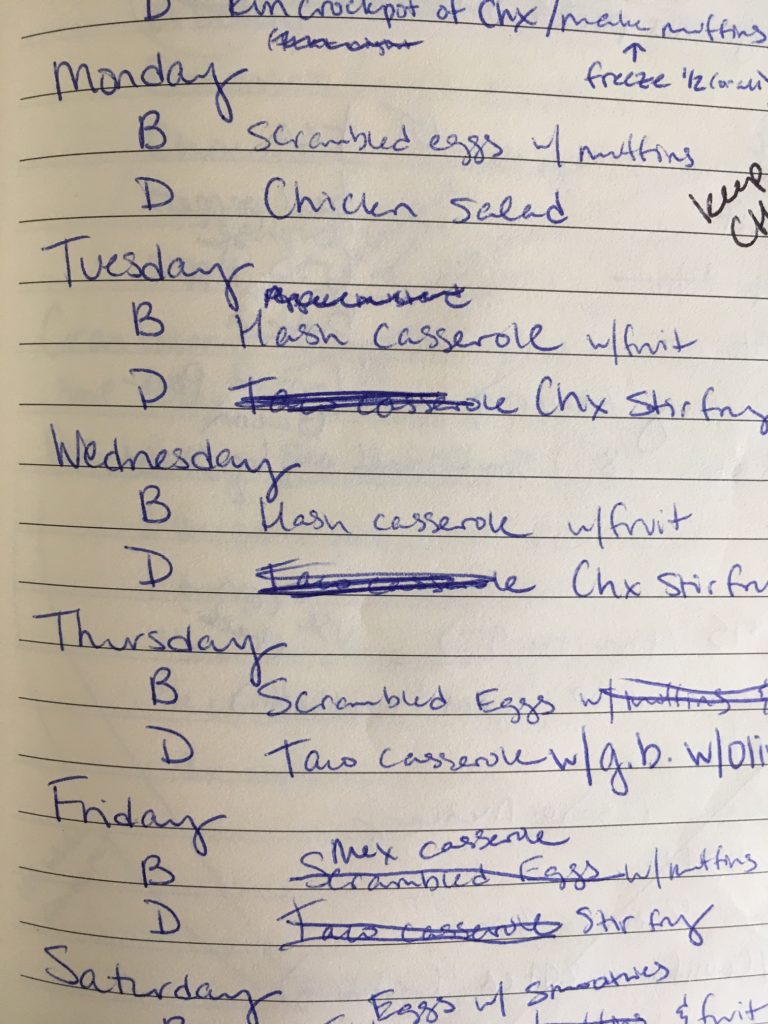 D Run Crockpot of Chx / make muffins
↑
freeze 1/2 (or all)
Monday
B Scrambled eggs w/ muffins
D Chicken Salad
keep
Tuesday
B Hash casserole w/fruit
D Taco casserole Chx Stir fry
Wednesday
B Hash casserole w/fruit
D Taco casserole Chx Stir fry
Thursday
B Scrambled Eggs w/ muffins
D Taco casserole w/g.b. w/Oli
Friday
Mex casserole
B Scrambled Eggs w/muffins
D Taco casserole Stir fry
Saturday
Eggs w/ Smoothies
B & fruit